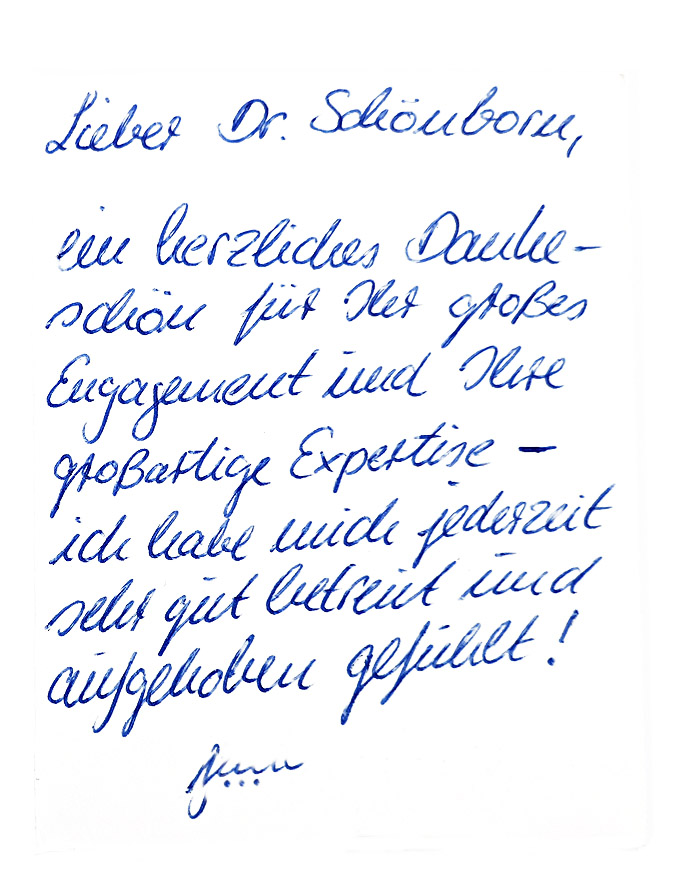 Lieber Dr. Schönborn,
ein herzliches Danke-
schön für Ihr großes
Engagement und Ihre
großartige Expertise –
ich habe mich jederzeit
sehr gut betreut und
aufgehoben gefühlt!